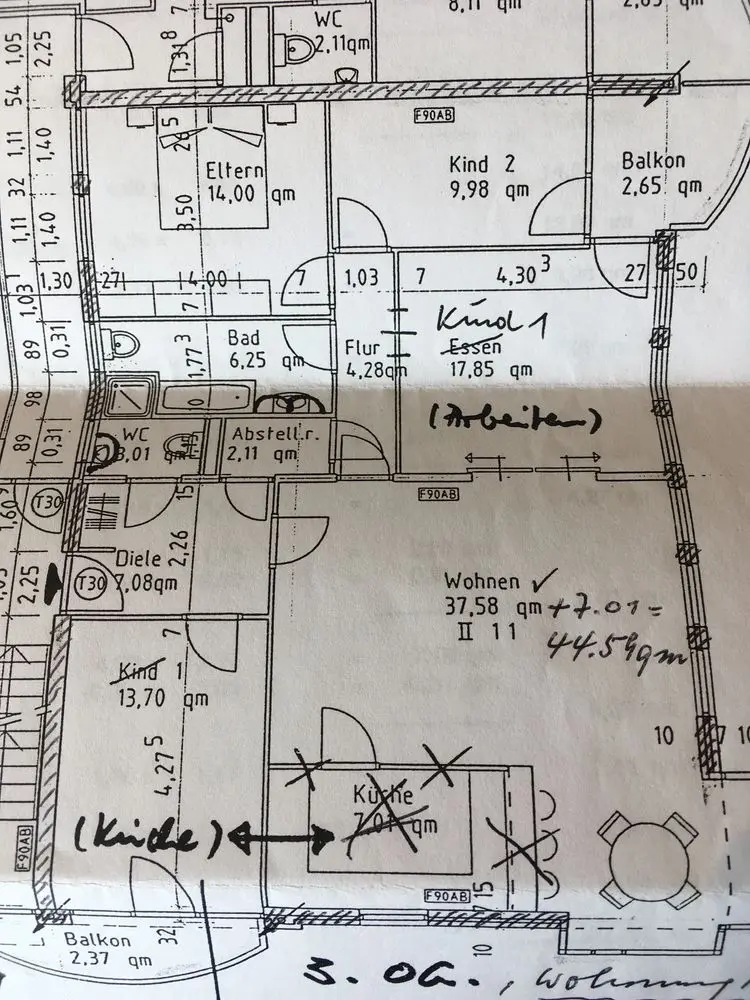 8,11 qm
2,65 qm
WC
2,11qm
1,05
2,25
7
1,31 8
54
F90AB
1,11
1,40
26 5
Eltern
14,00 qm
Kind 2
9,98 qm
Balkon
2,65 qm
32
3,50
1,11
1,40
1,30
27
4,00
7
1,03
7
4,30 3
27
50
1,03 1
7
Kind 1
89
0,31
1,77 3
Bad
6,25 qm
Flur
4,28qm
Essen
17,85 qm
98
0
(Arbeiten)
89
0,31
WC
3,01 qm
Abstell.r.
2,11 qm
F90AB
1,60
T30
15
2,26
Diele
7,08qm
T30
2,25
Wohnen ✓
37,58 qm + 7.01 =
II 11
44.59qm
7
Kind 1
13,70 qm
10
7
10
4,27 5
Küche
7,01 qm
(Küche)
F90AB
F90AB
15
32
Balkon
2,37 qm
10
3. OG., Wohnung